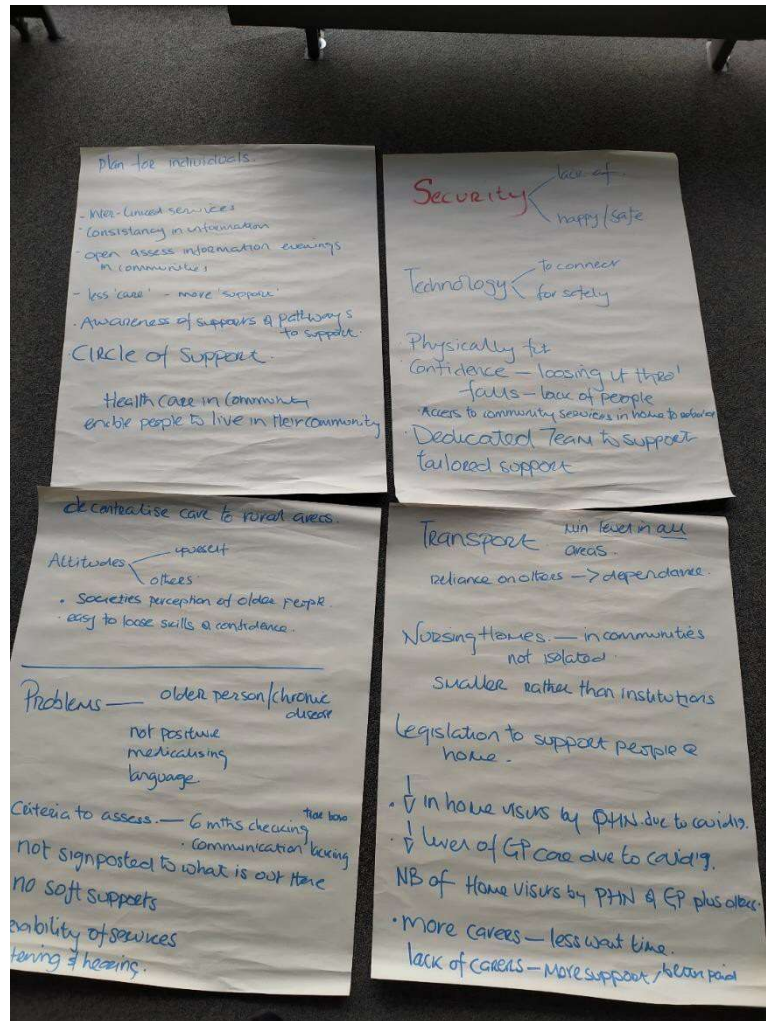 Plan for individuals.
- Inter-linked services
- Consistancy in information
- open assess information evenings
in communities
- less 'care' - more 'support'
· Awareness of supports & pathways
to support.
· CIRCLE of Support.
Health care in community
enable people to live in their community
Security
lack of
happy/safe
Technology
to connect
for safety
Physically fit
Confidence — loosing it thro'
falls — lack of people
· Access to community services in home to
· Dedicated Team to support
tailored support
decentralise care to rural areas.
Attitudes
yourself
others
· Societies perception of older people.
· easy to loose skills & confidence.
Problems — older person/chronic
disease
not positive
medicalising
language.
Criteria to assess. — 6 mths checking
· communication lacking
not signposted to what is out there
no soft supports
ability of services
tening & hearing.
Transport
min level in all
areas.
Reliance on others -> dependance.
Nursing Homes. — in communities
not isolated
smaller rather than institutions
Legislation to support people @
home.
· ↓ in home visits by PHN due to covid19.
· ↓ level of GP care due to covid19.
NB of Home visits by PHN & GP plus others.
· more carers — less wait time.
lack of carers — More support / paid